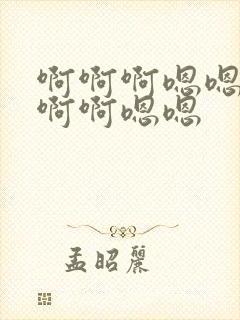 啊啊啊嗯嗯
啊啊嗯嗯
孟昭麗